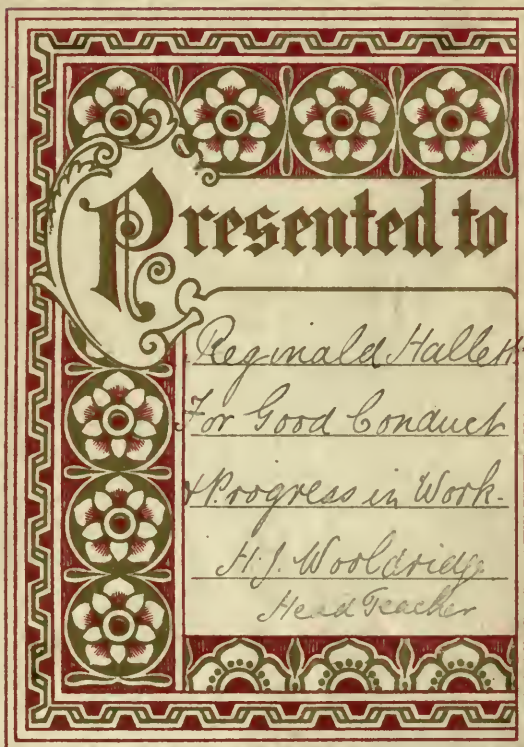 Presented to
Reginald Hallett
For Good Conduct
& Progress in Work.
H. J. Wooldridge
Head Teacher